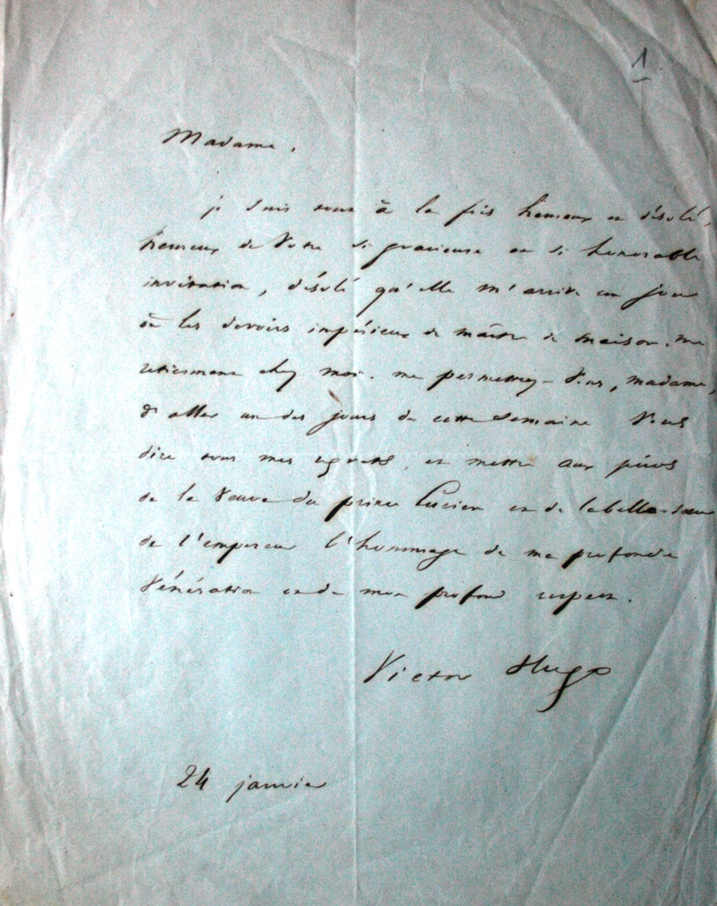 1
Madame,
je suis tout à la fois heureux et désolé,
heureux de votre si gracieuse et si honorable
invitation, désolé qu'elle m'arrive un jour
où les devoirs impérieux de maître de maison me
retiennent chez moi. me permettrez-vous, madame,
d'aller un des jours de cette semaine vous
dire tous mes regrets, et mettre aux pieds
de la veuve du prince Lucien et de la belle-sœur
de l'empereur l'hommage de ma profonde
vénération et de mon profond respect.
Victor Hugo
24 janvier